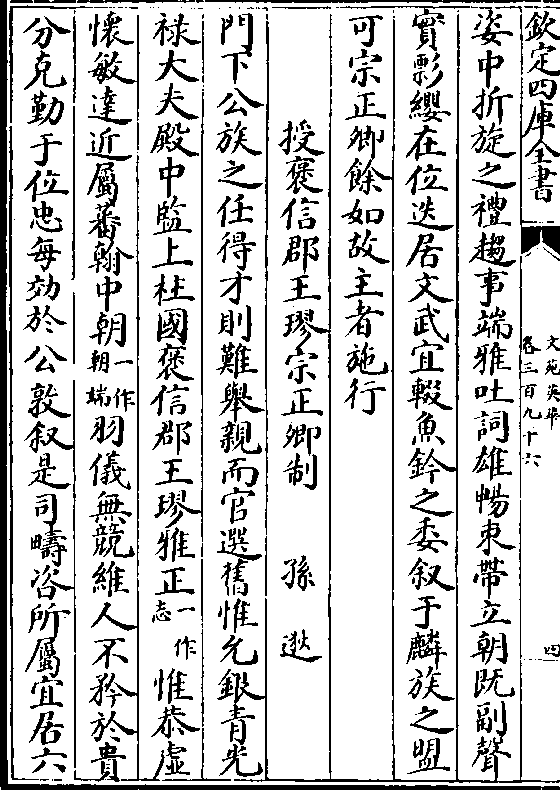 欽定四庫全書
文苑英華
卷三百九十六
四
姿中折旋之禮趨事端雅吐詞雄暢束帶立朝既副聲
實彯纓在位迭居文武宜輟魚鈐之委叙于麟族之盟
可宗正卿餘如故主者施行
授褒信郡王璆宗正卿制 孫逖
門下公族之任得才則難舉親而官選舊惟允銀青光
祿大夫殿中監上柱國褒信郡王璆雅正一作志惟恭虛
懷敏達近屬蕃翰中朝一作朝端羽儀無競維人不矜於貴
分克勤于位忠每効於公敦叙是司疇咨所屬宜居六